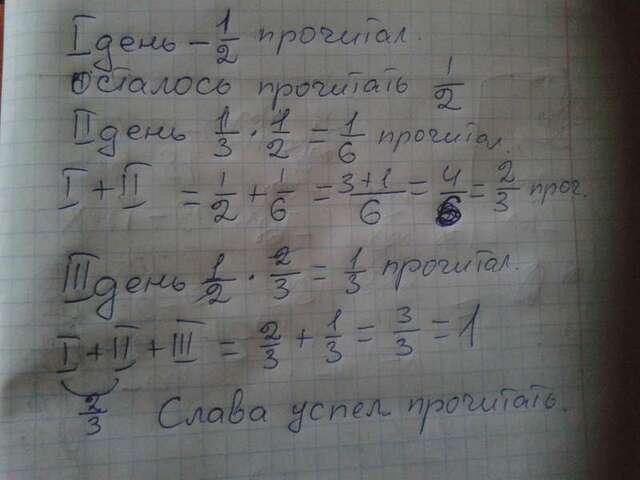 I день - 1/2 прочитал.
осталось прочитать 1/2
II день 1/3 · 1/2 = 1/6 прочитал.
I + II = 1/2 + 1/6 = 3+1/6 = 4/6 = 2/3 проч.
III день 1/2 · 2/3 = 1/3 прочитал.
I + II + III = 2/3 + 1/3 = 3/3 = 1
2/3 Слава успел прочитать.